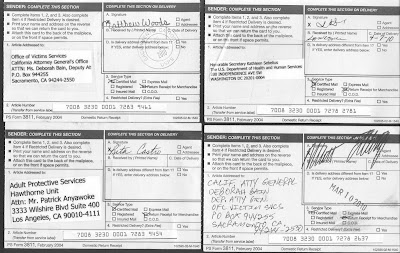 SENDER: COMPLETE THIS SECTION
Complete items 1, 2, and 3. Also complete
item 4 if Restricted Delivery is desired.
Print your name and address on the reverse
so that we can return the card to you.
Attach this card to the back of the mailpiece,
or on the front if space permits.
1. Article Addressed to:
Office of Victims Services
California Attorney General's Office
ATTN: Ms. Deborah Bain, Deputy At
P.O. Box 944255
Sacramento, CA 94244-2550
2. Article Number
(Transfer from service label)
7008 3230 0001 7283 9461
PS Form 3811, February 2004
Domestic Return Receipt
COMPLETE THIS SECTION ON DELIVERY
A. Signature
Agent
Addressee
B. Received by (Printed Name)
C. Date of Delivery
D. Is delivery address different from item 1? Yes
If YES, enter delivery address below: No
3. Service Type
Certified Mail Express Mail
Registered Return Receipt for Merchandise
Insured Mail C.O.D.
4. Restricted Delivery? (Extra Fee) Yes
SENDER: COMPLETE THIS SECTION
Complete items 1, 2, and 3. Also complete
item 4 if Restricted Delivery is desired.
Print your name and address on the reverse
so that we can return the card to you.
Attach this card to the back of the mailpiece,
or on the front if space permits.
1. Article Addressed to:
Honorable Secretary Kathleen Sebelius
The U.S. Department of Health and Human Services
200 INDEPENDENCE AVE SW
WASHINGTON DC 20201-0004
2. Article Number
(Transfer from service label)
7008 3230 0001 7278 2781
PS Form 3811, February 2004
Domestic Return Receipt
COMPLETE THIS SECTION ON DELIVERY
A. Signature
Agent
Addressee
B. Received by (Printed Name)
C. Date of Delivery
D. Is delivery address different from item 1? Yes
If YES, enter delivery address below: No
3. Service Type
Certified Mail Express Mail
Registered Return Receipt for Merchandise
Insured Mail C.O.D.
4. Restricted Delivery? (Extra Fee) Yes
SENDER: COMPLETE THIS SECTION
Complete items 1, 2, and 3. Also complete
item 4 if Restricted Delivery is desired.
Print your name and address on the reverse
so that we can return the card to you.
Attach this card to the back of the mailpiece,
or on the front if space permits.
Adult Protective Services
Hawthorne Unit
Attn: Mr. Patrick Anyawoke
3333 Wilshire Blvd Suite 400
Los Angeles, CA 90010-4111
2. Article Number
(Transfer from service label)
7008 3230 0001 7283 9454
PS Form 3811, February 2004
Domestic Return Receipt
COMPLETE THIS SECTION ON DELIVERY
A. Signature
Agent
Addressee
B. Received by (Printed Name)
C. Date of Delivery
D. Is delivery address different from item 1? Yes
If YES, enter delivery address below: No
3. Service Type
Certified Mail Express Mail
Registered Return Receipt for Merchandise
Insured Mail C.O.D.
4. Restricted Delivery? (Extra Fee) Yes
SENDER: COMPLETE THIS SECTION
Complete items 1, 2, and 3. Also complete
item 4 if Restricted Delivery is desired.
Print your name and address on the reverse
so that we can return the card to you.
Attach this card to the back of the mailpiece,
or on the front if space permits.
1. Article Addressed to:
DEBORAH BAIN
DEP ATTY GEN
OFC VICTIM SVCS
PO BOX 944255
SACRAMENTO CA
2. Article Number
(Transfer from service label)
7008 3230 0001 7278 2637
PS Form 3811, February 2004
Domestic Return Receipt
MAR 10 2010
3. Service Type
Certified Mail Express Mail
Registered Return Receipt for Merchandise
Insured Mail C.O.D.
4. Restricted Delivery? (Extra Fee) Yes